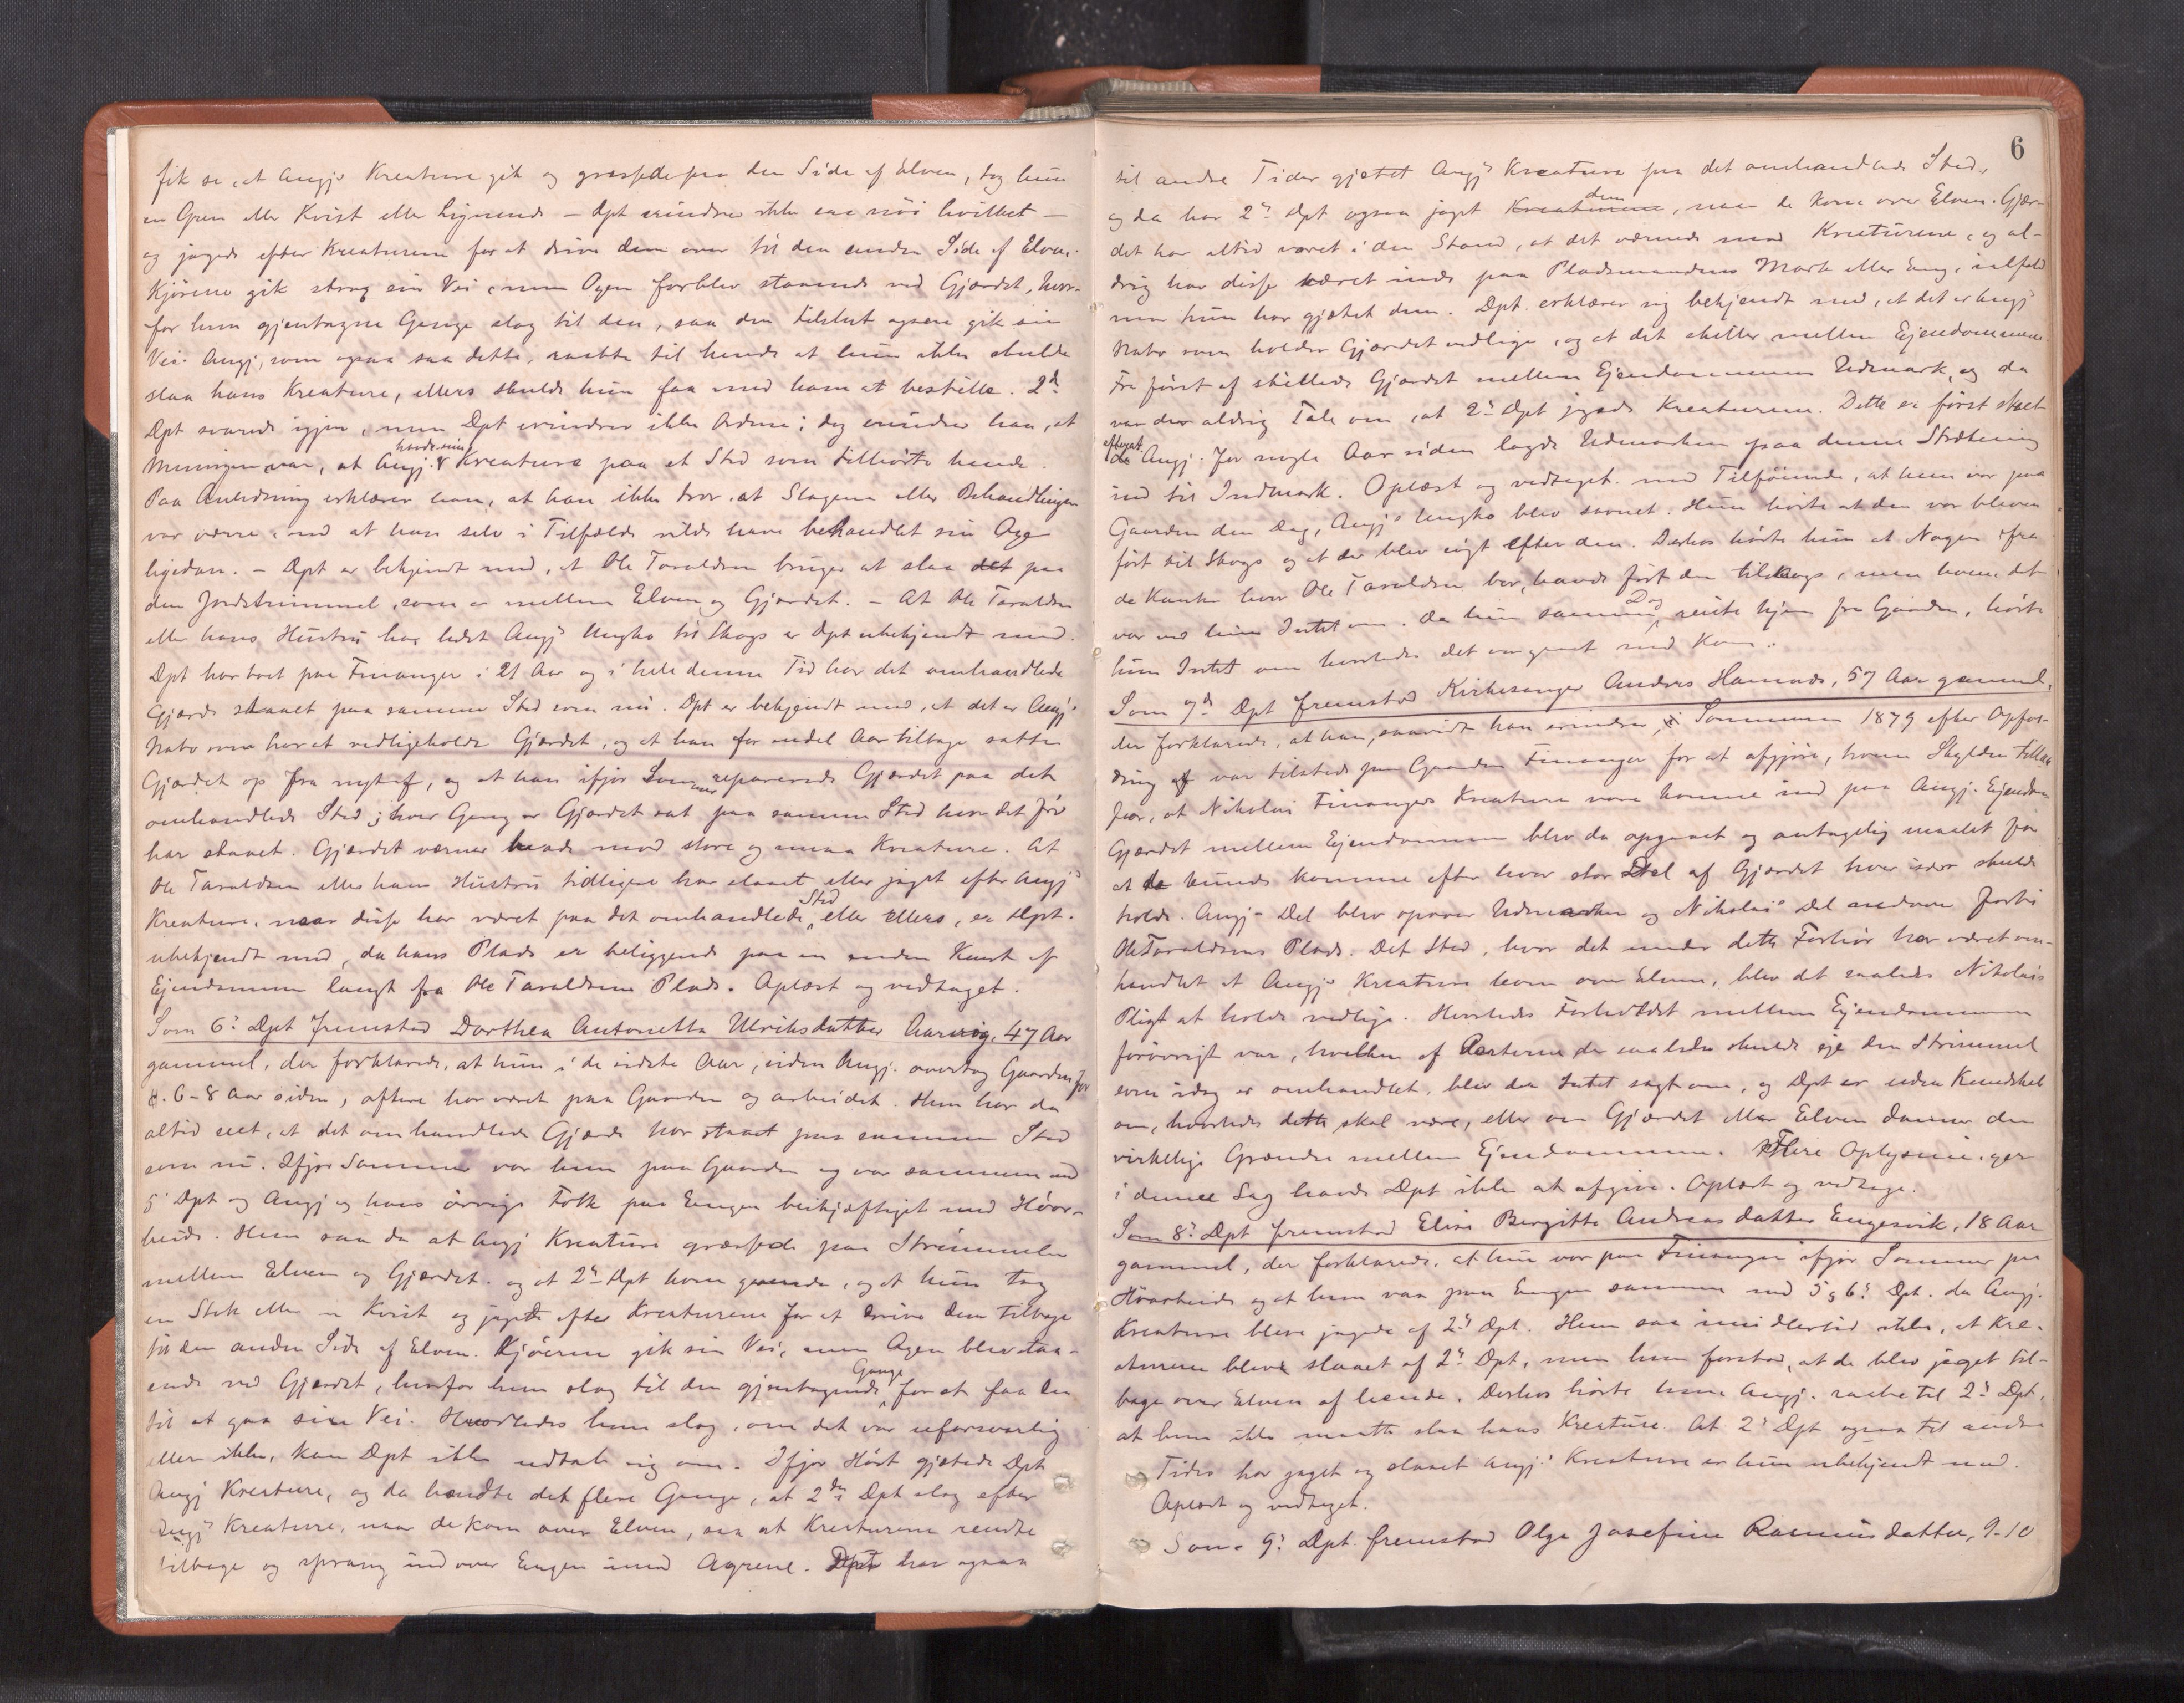 fik se, at Angj's Kreature gik og græssede paa den Side af Elven, tog hun
en Gren eller Kvist eller Lignende – Dpt erindrer ikke saa nøi hvilket –
og jagede efter Kreaturene for at drive dem over til den anden Side af Elven.
Kjørene gik strax sin Vei, men Oxen forblev staaende ved Gjærdet, hvor-
for hun gjentagne Gange slog til den, saa den tilslut ogsaa gik sin
Vei. Angj, som ogsaa saa dette, raabte til hende at hun ikke skulde
slaa hans Kreature, ellers skulde hun faa med ham at bestille. 2d
Dpt svarede igjen, men Dpt erindrer ikke Ordene; dog erindrer han, at
Meningen var, at Angj. Kreature paa et Sted som tilhørte hende.
Paa Anledning erklærer han, at han ikke tror, at Slagene eller Behandlingen
var værre, end at han selv i Tilfælde vilde have behandlet sin Oxe
ligedan. – Dpt er bekjendt med, at Ole Taraldsen bruger at slaa det paa
den Jordstrimmel, som er mellem Elven og Gjærdet. – At Ole Taraldsen
eller hans Hustru har ledet Angj's Ungko til Skogs er Dpt ubekjendt med.
Dpt har boet paa Finanger i 21 Aar og i hele denne Tid har det omhandlede
Gjærde staaet paa samme Sted som nu. Dpt er bekjendt med, at det er Angj's
Nabo som har at vedligeholde Gjærdet, og at han for endel Aar tilbage satte
Gjærdet op fra nyt af, og at han ifjor Sommer reparerede Gjærdet paa det
omhandlede Sted; hver Gang er Gjærdet sat paa samme Sted hvor det før
har staaet. Gjærdet værner baade mod store og smaa Kreature. At
Ole Taraldsen eller hans Hustru tidligere har slaaet eller jaget efter Angj's
Kreature, naar disse har været paa det omhandlede Sted eller ellers, er Dpt.
ubekjendt med, da hans Plads er beliggende paa en anden Kant af
Ejendommen langt fra Ole Taraldsens Plads. Oplæst og vedtaget.
Som 6: Dpt fremstod Dorthea Antonetta Ulriksdatter Aarvig, 47 Aar
gammel, der forklarede, at hun i de sidste Aar, siden Angj. overtog Gaarden for
6-8 Aar siden, oftere har været paa Gaarden og arbeidet. Hun har da
altid seet, at det omhandlede Gjærde har staaet paa samme Sted
som nu. Ifjor Sommer var hun paa Gaarden og var sammen med
5 Dpt og Angj og hans øvrige Folk paa Engen beskjæftiget med Høar-
beide. Hun saa da at Angj Kreature græssede paa Strimmelen
mellem Elven og Gjærdet og at 2n Dpt kom gaaende, og at hun tog
en Stok eller en Kvist og jagede efter Kreaturene for at drive dem tilbage
til den anden Side af Elven. Kjørene gik sin Vei, men Oxen blev staa-
ende ved Gjærdet, hvorfor hun slog til den gjentagende Gange for at faa den
til at gaa sin Vei. Hvorledes hun slog, om det var uforsvarlig
eller ikke, kan Dpt ikke udtale sig om. Ifjor Høst gjætede Dpt
Angj Kreature, og da hændte det flere Gange, at 2den Dpt slog efter
Angj's Kreature, naar de kom over Elven, saa at Kreaturene rendte
tilbage og sprang ind over Engen imod Agrene. Dpt har ogsaa
6
til andre Tider gjætet Angj's Kreature paa det omhandlede Sted,
og da har 2n Dpt ogsaa jaget dem, naar de kom over Elven. Gjær-
det har altid været i den Stand, at det værnede mod Kreaturene, og al-
drig har disse været inde paa Pladsmandens Mark eller Eng, ialfald
naar hun har gjætet dem. Dpt. erklærer sig bekjendt med, at det er Angj's
Nabo som holder Gjærdet vedlige, og at det skiller mellem Ejendommene.
Før først af skillede Gjærdet mellem Ejendommenes Udmark, og da
var der aldrig Tale om, at 2n Dpt jagede Kreaturene. Dette er først skeet
efterat Angj. for nogle Aar siden lagde Udmarken paa denne Strækning
ind til Indmark. Oplæst og vedtaget med Tilføiende, at hun var paa
Gaarden den Dag, Angj's Ungko blev savnet. Hun hørte at den var bleven
ført til Skogs og at der blev søgt efter den. Derhos hørte hun at Nogen fra
de Kanter hvor Ole Taraldsen bor, havde ført den tilskogs, men hvem det
var ved hun Intet om. Da hun samme Dag reiste hjem fra Gaarden, hørte
hun Intet om hvorledes det var gaaet med Koen.
Som 7d Dpt fremstod Kirkesanger Anders Hamnes, 57 Aar gammel,
der forklarede, at han, saavidt han erindrer, i Sommeren 1879 efter Opfor-
dring var tilstede paa Gaarden Finanger for at afgjøre, hvem Skylden tillaa
for, at Nikolai Finangers Kreature vare komne ind paa Angj. Ejendom
Gjærdet mellem Ejendommene blev da opgaaet og antagelig maalet for
at de kunde komme efter hvor stor Del af Gjærdet hver især skulde
holde. Angj's Del blev opover Udmarken og Nikolais Del nedover forbi
Ole Taraldsens Plads. Det Sted, hvor det under dette Forhør har været om-
handlet at Angj's Kreature kom over Elven, blev det saaledes Nikolais
Pligt at holde vedlige. Hvorledes Forholdet mellem Ejendommene
forøvrigt var, hvilken af Parterne der saaledes skulde eje den Strimmel
som idag er omhandlet, blev der Intet sagt om, og Dpt er uden Kundskab
om, hvorledes dette skal være, eller om Gjærdet eller Elven danner den
virkelige Grændse mellem Ejendommene. Flere Oplysninger
i denne Sag havde Dpt ikke at afgive. Oplæst og vedtaget.
Som 8: Dpt fremstod Elise Bergitte Andreasdatter Engesvik, 18 Aar
gammel, der forklarede, at hun var paa Finanger ifjor Sommer paa
Høarbeide og at hun var paa Engen sammen med 5 & 6: Dpt. da Angj.
Kreature bleve jagede af 2d Dpt. Hun saa imidlertid ikke, at Kre-
aturene blev slaaet af 2n Dpt, men hun forstod, at de blev jaget til-
bage over Elven af hende. Derhos hørte hun Angj. raabe til 2d Dpt,
at hun ikke maatte slaa hans Kreature. At 2n Dpt ogsaa til andre
Tider har jaget og slaaet Angj's Kreature er hun ubekjendt med.
Oplæst og vedtaget.
Som 9: Dpt. fremstod Olga Josefine Rasmusdatter, 9-10